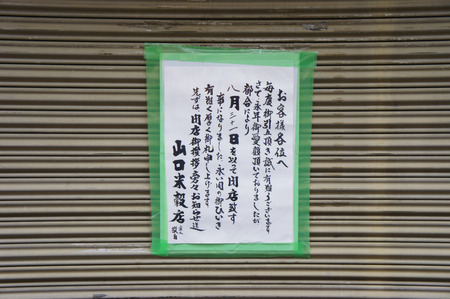 お客様各位へ
毎度御引立頂き誠に有難うございます
さて永年御愛顧頂いておりましたが
都合により
八月三十一日を以って閉店致す
事になりました 永い間の御ひいき
有難く厚く御礼申し上げます
先ずは閉店御挨拶旁々お知らせ迄
山口米穀店